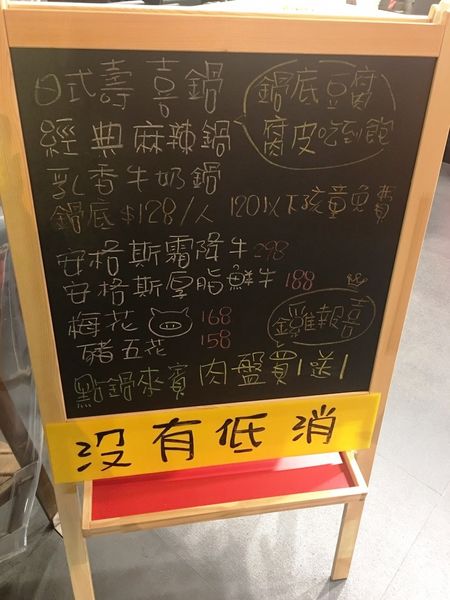 日式壽喜鍋
鍋底豆腐
腐皮吃到飽
經典麻辣鍋
乳香牛奶鍋
鍋底$128/人 120以下孩童免費
安格斯霜降牛298
安格斯厚脂鮮牛188
梅花 168
豬五花 158
雞報喜
點鍋來賓 肉盤買1送1
没有低消